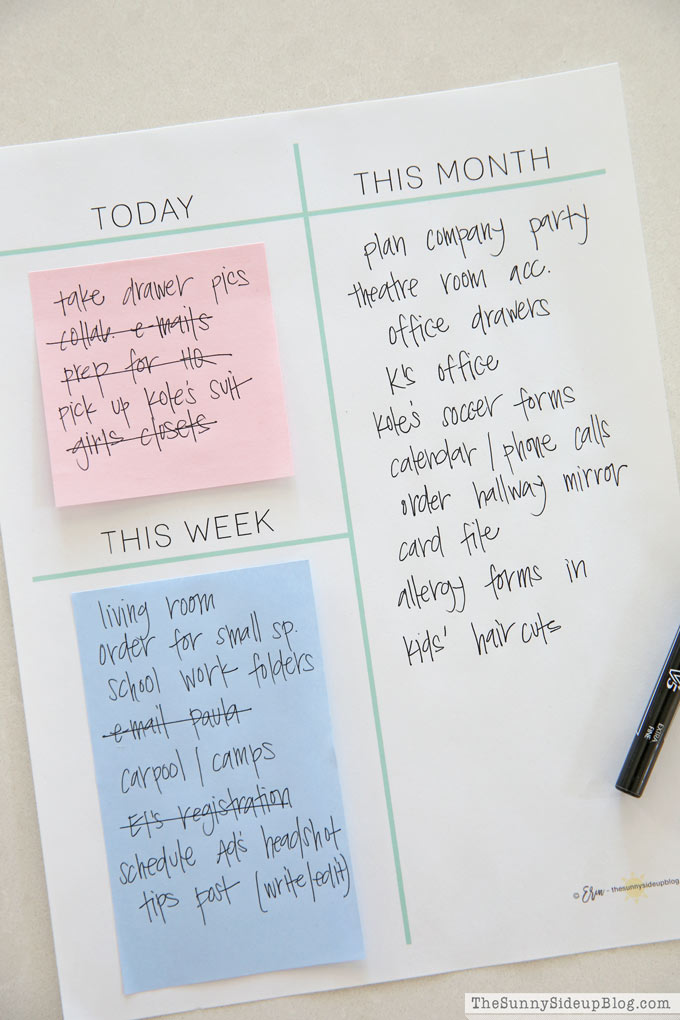 TODAY
take drawer pics
collab. e-mails
prep for HQ
pick up kole's suit
girls closets
THIS WEEK
living room
order for small sp.
school work folders
e-mail paula
carpool / camps
El's registration
schedule Ad's headshot
tips post (write/edit)
THIS MONTH
plan company party
theatre room acc.
office drawers
K's office
kole's soccer forms
calendar / phone calls
order hallway mirror
card file
allergy forms in
kids' hair cuts
V5
EXTRA
FINE
© Erin - thesunnysideupblog
TheSunnySideupBlog.com